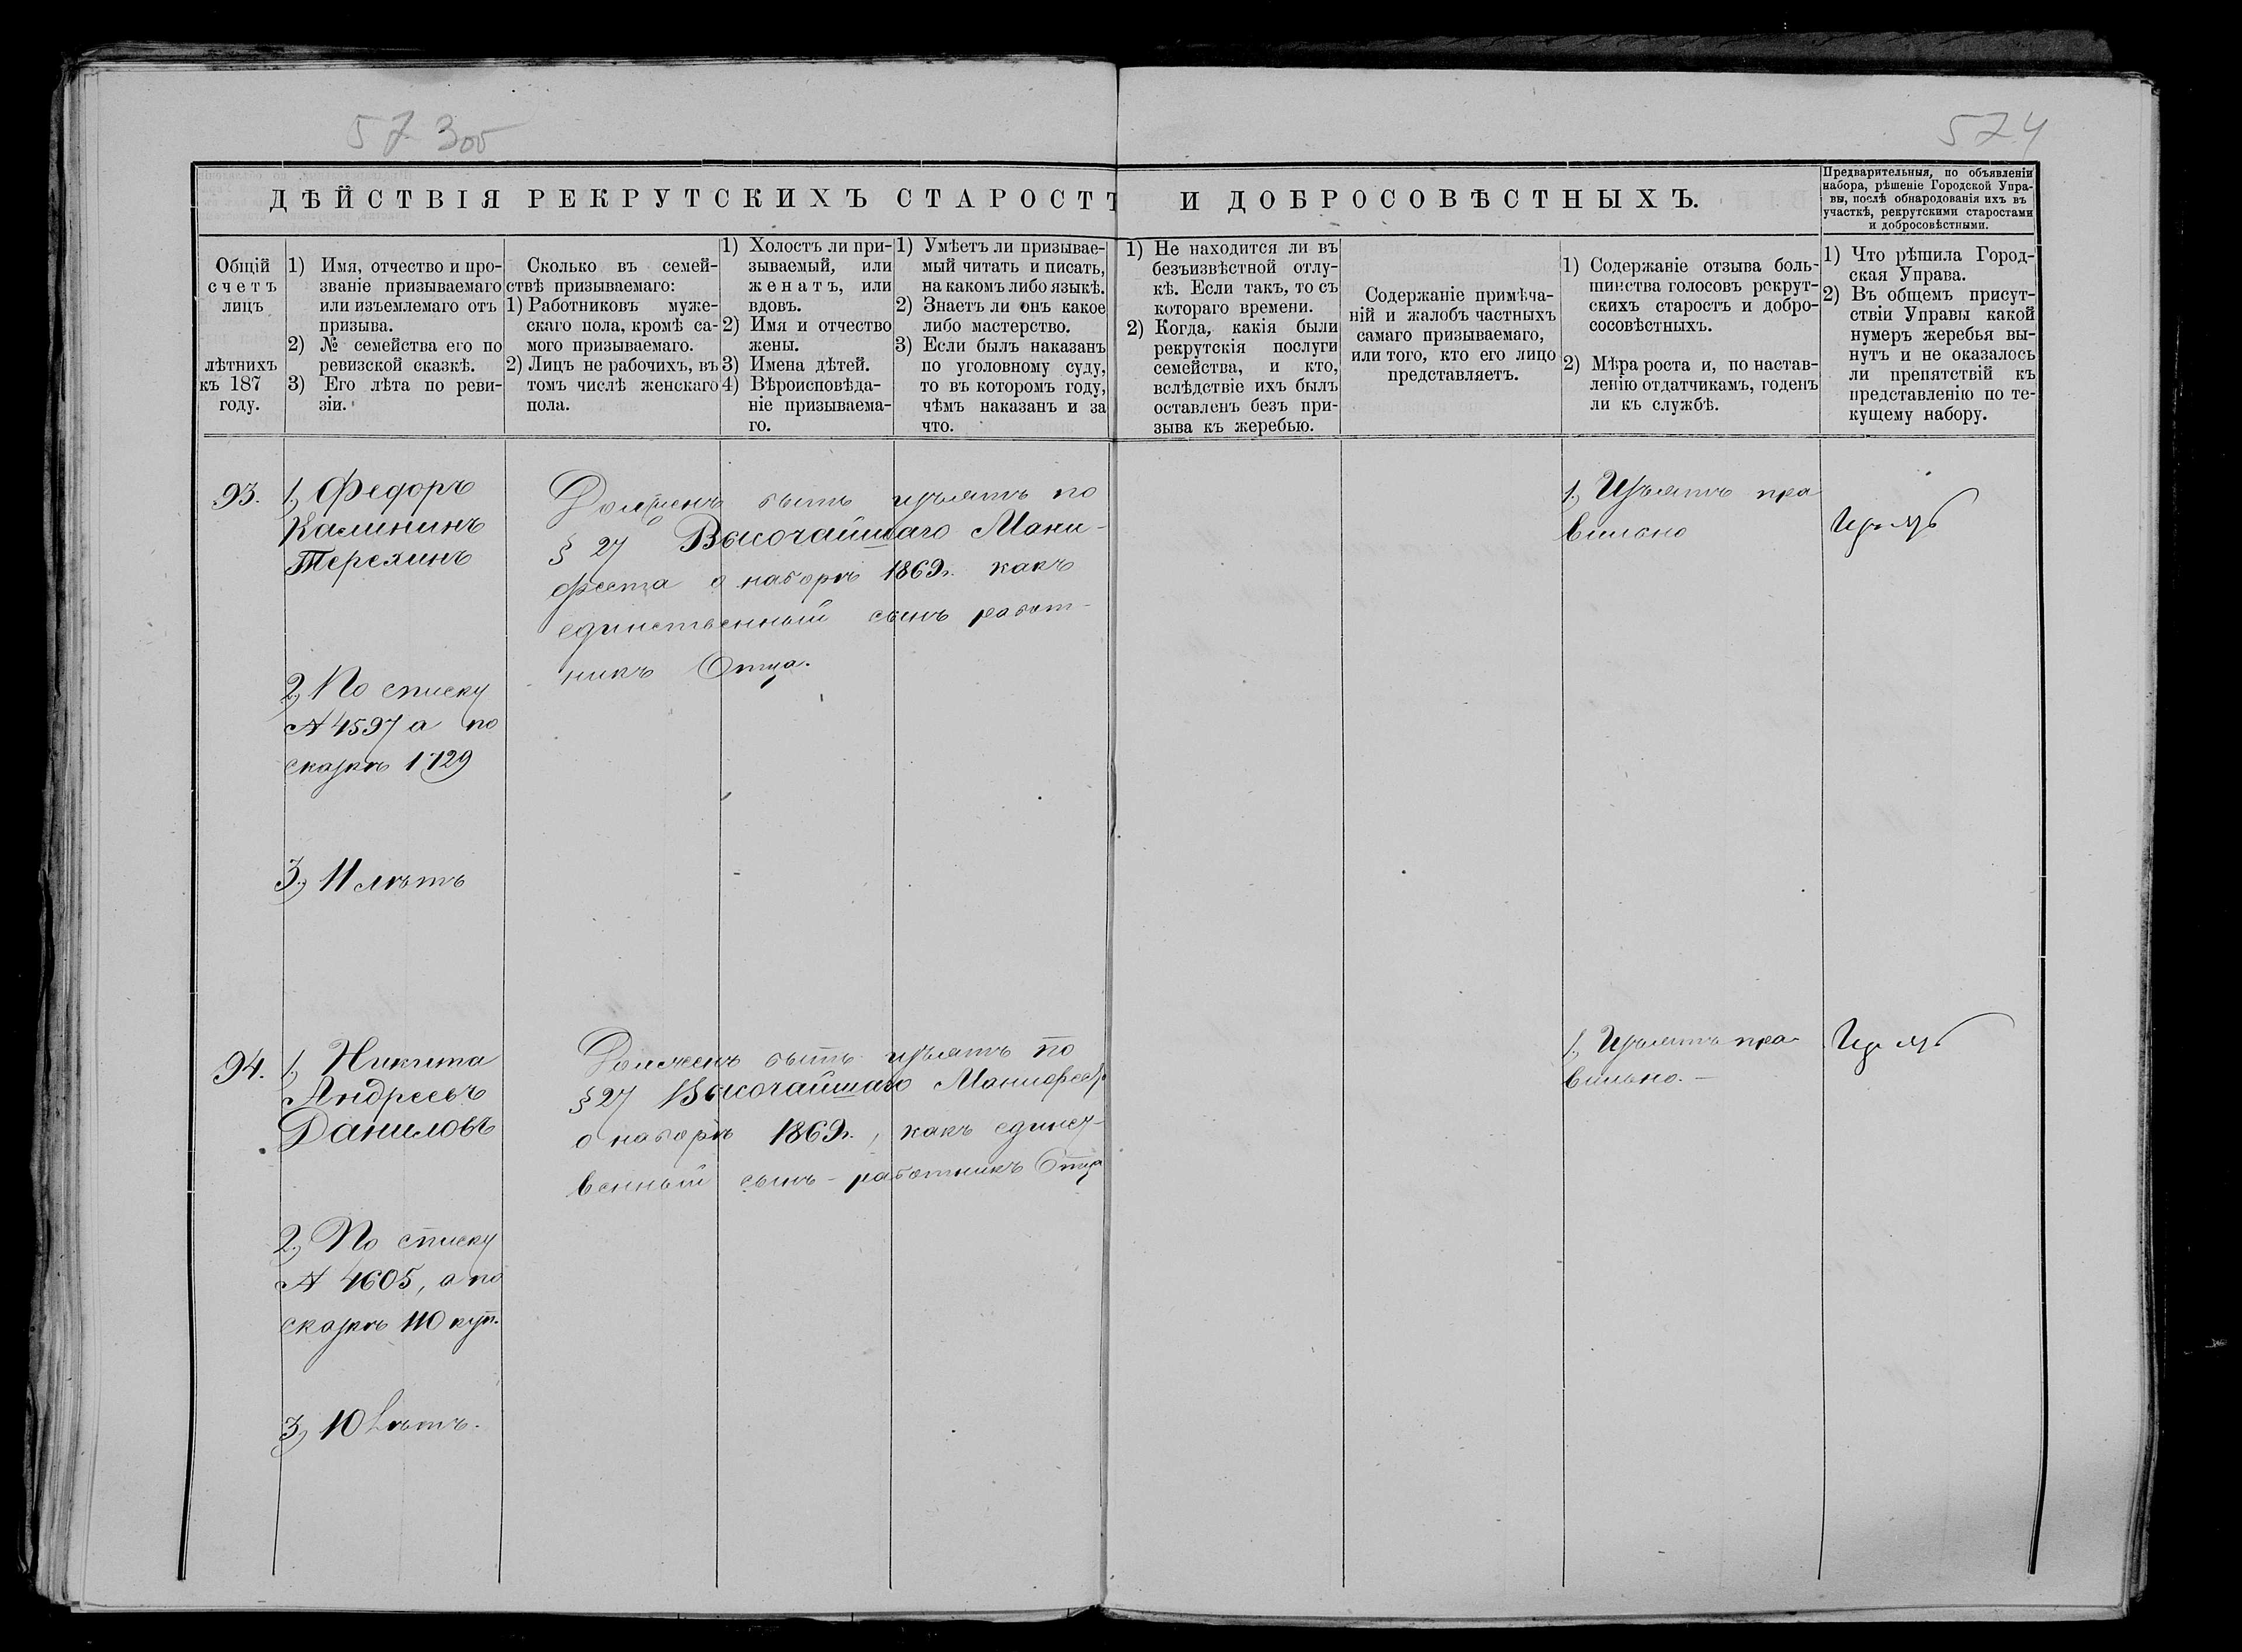 573 об
574
ДѢЙСТВІЯ РЕКРУТСКИХЪ СТАРОСТЪ И ДОБРОСОВѢСТНЫХЪ.
Предварительныя, по объявленіи
набора, рѣшеніе Городской Упра-
вы, послѣ обнародованія ихъ въ
участкѣ, рекрутскими старостами
и добросовѣстными.
Общій
счетъ
лицъ
лѣтнихъ
къ 187
году.
1) Имя, отчество и про-
званіе призываемаго
или изъемлемаго отъ
призыва.
2) № семейства его по
ревизской сказкѣ.
3) Его лѣта по реви-
зіи.
Сколько въ семей-
ствѣ призываемаго:
1) Работниковъ муже-
скаго пола, кромѣ са-
мого призываемаго.
2) Лицъ не рабочихъ, въ
томъ числѣ женскаго
пола.
1) Холостъ ли при-
зываемый, или
женатъ, или
вдовъ.
2) Имя и отчество
жены.
3) Имена дѣтей.
4) Вѣроисповѣда-
ніе призываема-
го.
1) Умѣетъ ли призывае-
мый читать и писать,
на какомъ либо языкѣ.
2) Знаетъ ли онъ какое
либо мастерство.
3) Если былъ наказанъ
по уголовному суду,
то въ которомъ году,
чѣмъ наказанъ и за
что.
1) Не находится ли въ
безъизвѣстной отлу-
кѣ. Если такъ, то съ
котораго времени.
2) Когда, какія были
рекрутскія послуги
семейства, и кто,
вслѣдствіе ихъ былъ
оставленъ безъ при-
зыва къ жеребью.
Содержаніе примѣча-
ній и жалобъ частныхъ
самаго призываемаго,
или того, кто его лицо
представляетъ.
1) Содержаніе отзыва боль-
шинства голосовъ рекрут-
скихъ старостъ и добро-
сосовѣстныхъ.
2) Мѣра роста и, по настав-
ленію отдатчикамъ, годенъ
ли къ службѣ.
1) Что рѣшила Город-
ская Управа.
2) Въ общемъ присут-
ствіи Управы какой
нумеръ жеребья вы-
нутъ и не оказалось
ли препятствій къ
представленію по те-
кущему набору.
93.
1, Федоръ
Калининъ
Терехинъ
2, По списку
№ 4597 а по
сказкѣ 1729
3, 11 лѣтъ
Долженъ быть изъятъ по
§ 27 Высочайшаго Мани-
феста о наборѣ 1869г. какъ
единственный сынъ работ-
никъ Отца.
1, Изъятъ пра
вильно
94.
1, Никита
Андреевъ
Даниловъ
2, По списку
№ 4605, а по
сказкѣ 110 куп.
3, 10 Лѣтъ.
Долженъ быть изъятъ по
§ 27 Высочайшаго Манифест
о наборѣ 1869г., какъ единст-
венный сынъ-работникъ Отца
1, Изъятъ пра-
вильно. —